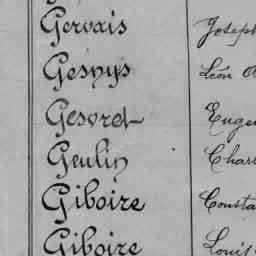 Gervais Joseph
Gesnys Léon
Gesvret Eugen
Geulin Charl
Giboire Consta
Giboire Louis